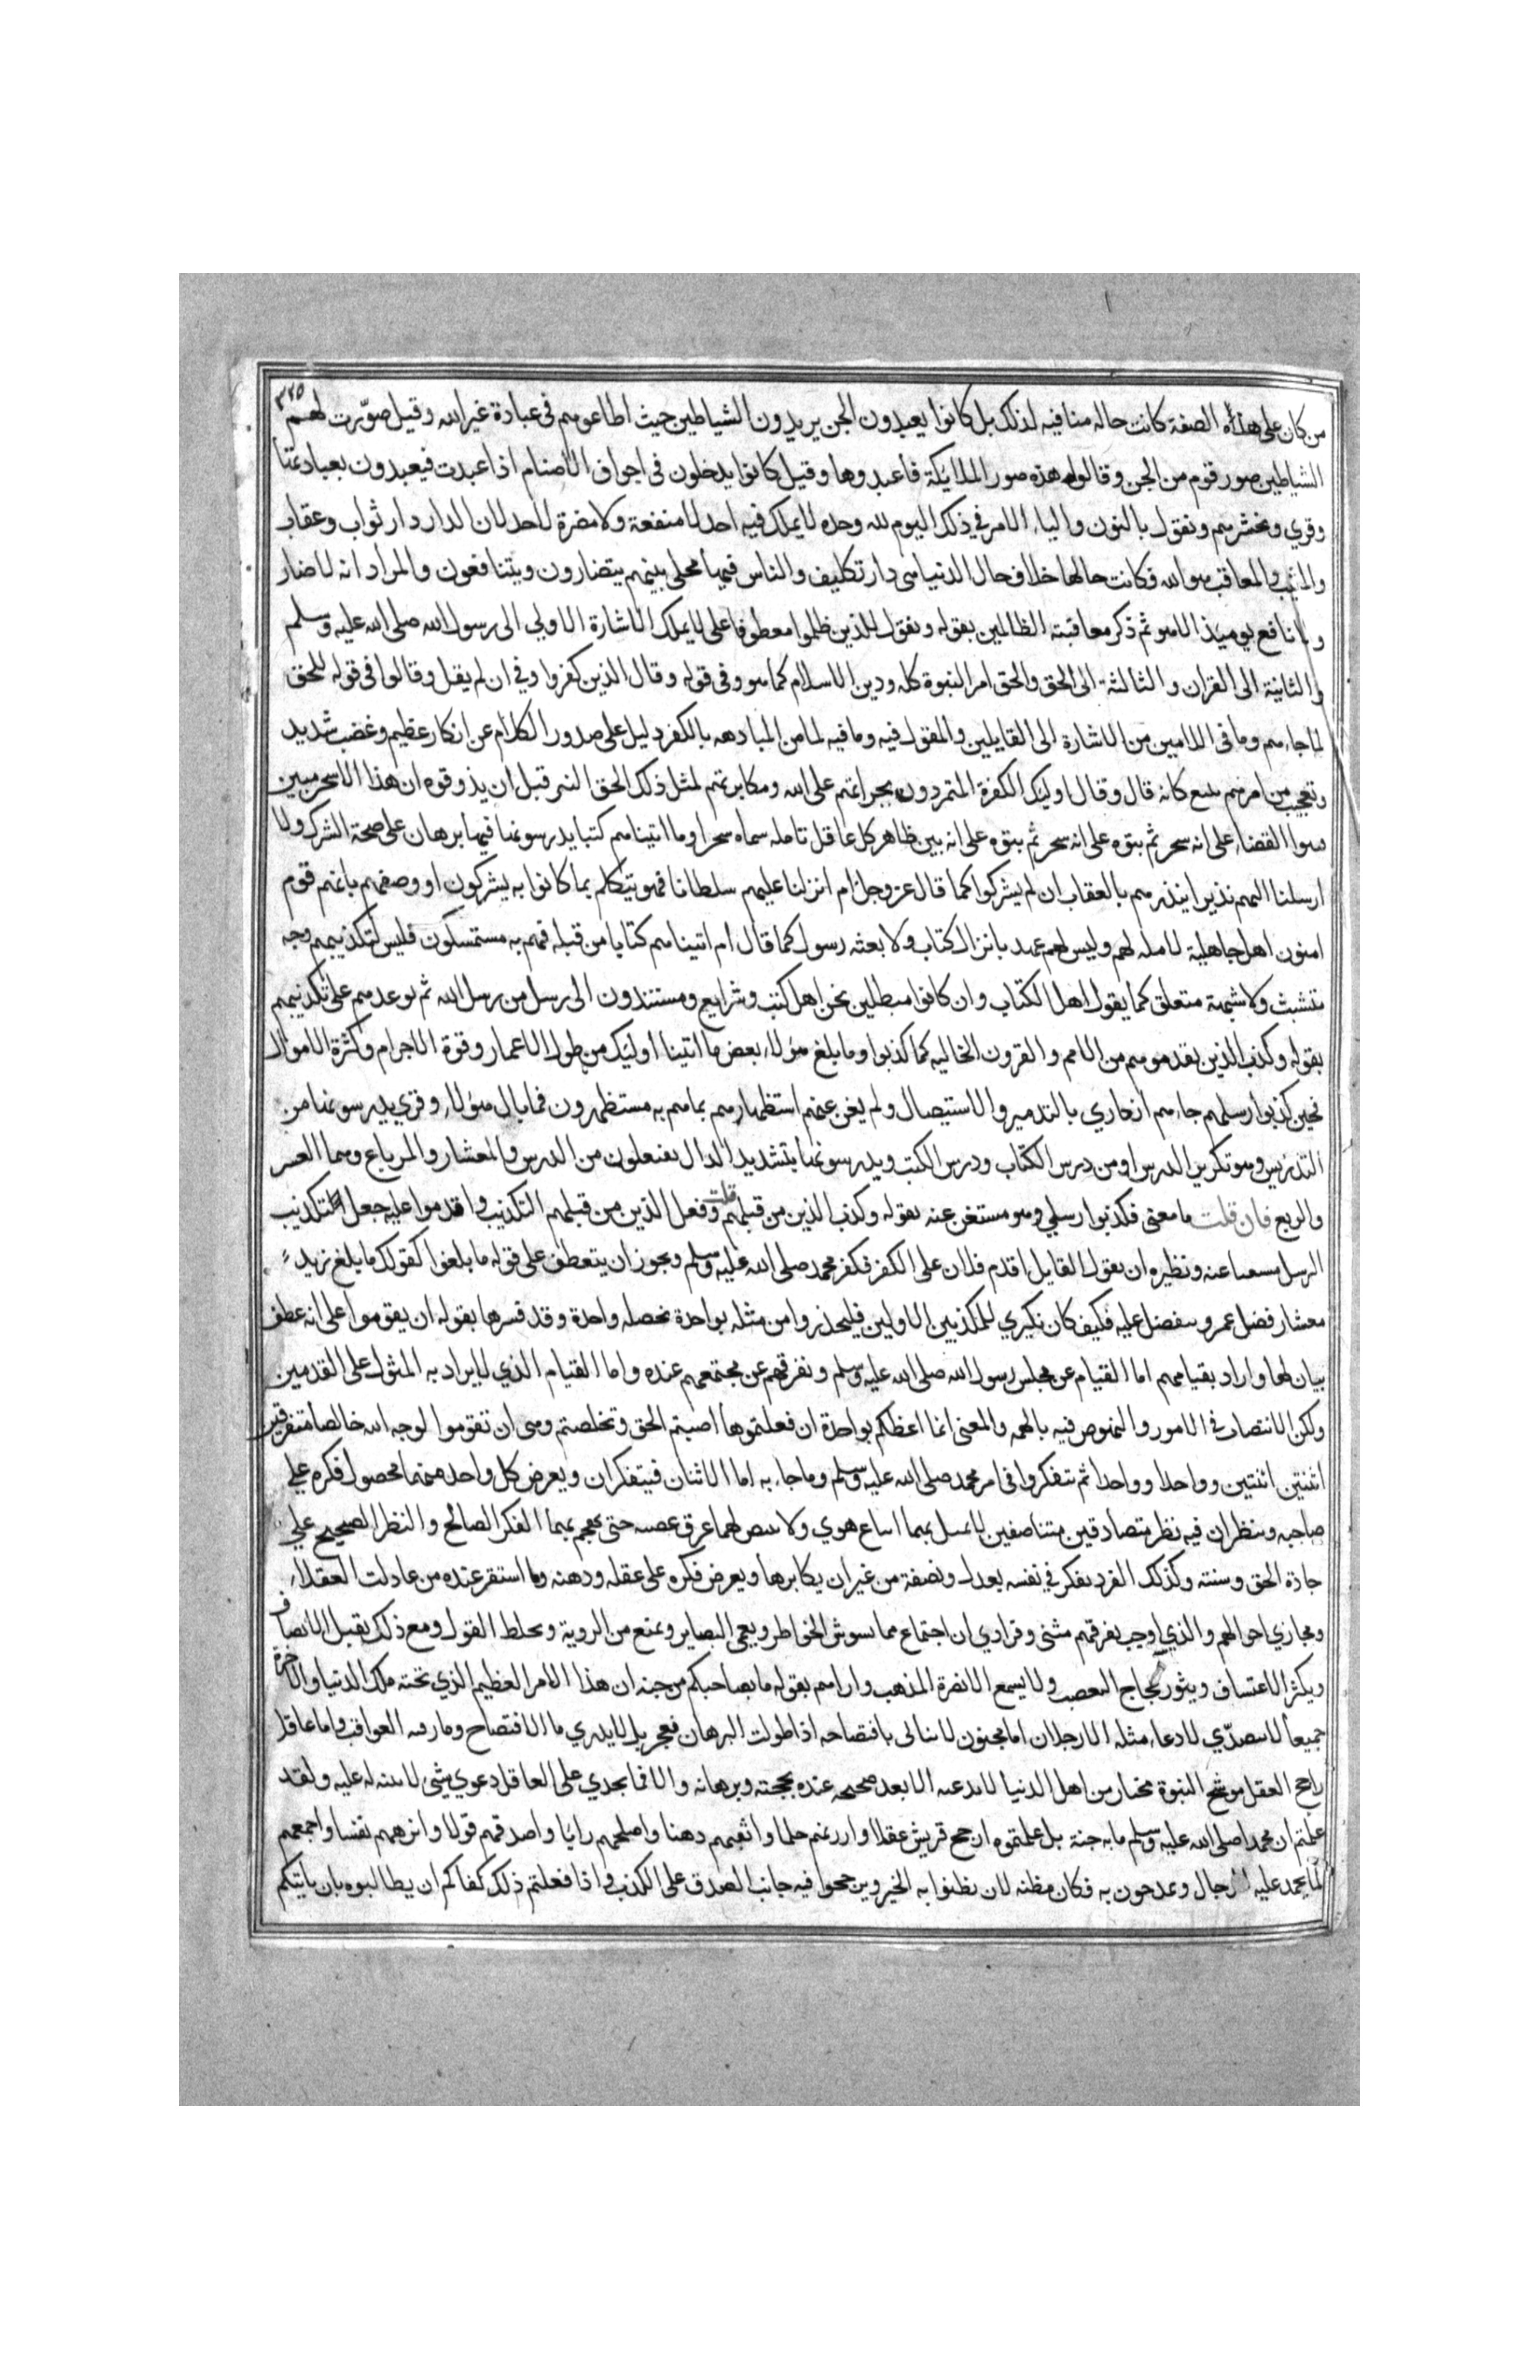 ٣٢٥
من كان على هذه الصفة كانت حاله منافيه لذلك بل كانوا يعبدون الجن يريدون الشياطين حيث اطاعوهم في عبادة غير الله وقيل صوّرت لهم
الشياطين صور قوم من الجن وقالوا هذه صور الملايكة فاعبدوها وقيل كانوا يدخلون في اجواف الأصنام اذا عبدت فيعبدون بعبادتها
وقري ونحشرهم ونقول بالنون والياء الامر في ذلك اليوم لله وحده لا يملك فيه احد لا منفعة ولا مضرة لاحد لان الدار دار ثواب وعقاب
والمثيب والمعاقب هو الله فكانت حالها خلاف حال الدنيا هي دار تكليف والناس فيها مخلى بينهم يتضارون ويتنافعون والمراد انه لا ضار
ولا نافع يوميذ الا هو ثم ذكر معاقبته الظالمين بقوله ونقول للذين ظلموا معطوفا على لا يملك الاشارة الاولى الى رسول الله صلى الله عليه وسلم
والثانية الى القران والثالثة الى الحق والحق امر النبوة كله ودين الاسلام كما هو وفي قوله وقال الذين كفروا وفي ان لم يقل وقالوا في قوله للحق
لما جاءهم وما في اللامين من الاشارة الى القايلين والمقول فيه وما فيه لما من المبادهه بالكفر دليل على صدور الكلام عن انكار عظيم وغضب شديد
وتعجيب من امرهم بليغ كانه قال وقال اوليك الكفرة المتمردون بجراءتهم على الله ومكابرتهم لمثل ذلك الحق النير قبل ان يذوقوه ان هذا الا سحر مبين
فبتوا القضاء على انه سحر ثم بتوه على انه سحر ثم بتوه على انه بين ظاهر كل عاقل تامله سماه سحرا وما اتيناهم كتبا يدرسونها فيها برهان على صحة الشرك ولا
ارسلنا اليهم نذيرا ينذرهم بالعقاب ان لم يشركوا كما قال عز وجل ام انزلنا عليهم سلطانا فهو يتكلم بما كانوا به يشركون او وصفهم بانهم قوم
اميون اهل جاهلية لا مله لهم وليس لهم عهد بانزال كتاب ولا بعثه رسول كما قال ام اتيناهم كتابا من قبله فهم به مستمسكون فليس لتكذيبهم وجه
متشبث ولا شبهة متعلق كما يقول اهل الكتاب وان كانوا مبطلين نحن اهل كتب وشرايع ومستندون الى رسل من رسل الله ثم توعدهم على تكذيبهم
بقوله وكذب الذين تقدموهم من الامم والقرون الخاليه كما كذبوا وما بلغ هؤلاء بعض ما اتينا اوليك من طول الاعمار وقوة الاجرام وكثرة الاموال
فحين كذبوا رسلهم جاءهم انكاري بالتدمير والاستيصال ولم يغن عنهم استظهارهم بما هم به مستظهرون فما بال هؤلاء وقري يدرسونها من
التدريس وهو تكرير الدرس او من درس الكتاب ودرس الكتب ويدرسونها بتشديد الدال يفتعلون من الدرس والمعشار والمرباع وهما العشر
والربع فان قلت ما معنى فكذبوا رسلي وهو مستغن عنه بقوله وكذب الذين من قبلهم قلت وفعل الذين من قبلهم التكذيب واقدموا عليه جعل التكذيب
الرسل مسببا عنه ونظيره ان يقول القايل اقدم فلان على الكفر فكفر محمد صلى الله عليه وسلم ويجوز ان يتعطف على قوله ما بلغوا كقولك ما بلغ زيد
معشار فضل عمرو يتفضل عليه فكيف كان نكيري للمكذبين الاولين فليحذروا من مثله بواحدة بخصله واحدة وقد فسرها بقوله ان يقوموا على انه عطف
بيان لها واراد بقيامهم اما القيام عن مجلس رسول الله صلى الله عليه وسلم وتفرقهم عن مجتمعهم عنده واما القيام الذي لا يراد به المثول على القدمين
ولكن الانتصاب في الامور والنهوض فيه بالهمه والمعنى انما اعظكم بواحدة ان فعلتموها اصبتم الحق وتخلصتم وهي ان تقوموا لوجه الله خالصا متفرقين
اثنتين اثنتين وواحدا وواحدا ثم تتفكروا في امر محمد صلى الله عليه وسلم وما جاء به اما الاثنان فيتفكران ويعرض كل واحد منهما محصول فكره على
صاحبه وينظران فيه نظر متصادقين متناصفين لا يميل بهما اتباع هوي ولا ينبض لهما عرق عصبيه حتى يهجم بهما الفكر الصالح والنظر الصحيح على
جادة الحق وسنته وكذلك الفرد يفكر في نفسه بعدل ونصفة من غير ان يكابرها ويعرض فكره على عقله وذهنه وما استقر عنده من عادات العقلاء
ومجاري احوالهم والذي اوجب تفرقهم مثنى وفرادي ان اجتماع مما يشوش الخواطر ويعمي البصاير ويمنع من الروية ويخلط القول ومع ذلك يقبل الانصاف
ويكثر الاعتساف ويثور عجاج التعصب ولا يسمع الا نصرة المذهب واراهم بقوله ما بصاحبكم من جنه ان هذا الامر العظيم الذي تحته ملك الدنيا والاخرة
جميعا لا يتصدّي لادعاء مثله الا رجلان اما مجنون لا يبالى بافتضاحه اذا طولب البرهان فعجز بل لا يدري ما الافتضاح وما رقبه العواقب واما عاقل
راجح العقل مرشح النبوة مختار من اهل الدنيا لا يدعيه الا بعد صحيحه عنده بحجته وبرهانه والا فما يجدي على العاقل دعوي شي لا بينه له عليه ولقد
علمتم ان محمدا صلى الله عليه وسلم ما به جنة بل علمتموه ارجح قريش عقلا وارزنهم حلما واثقبهم ذهنا واصلحهم رايا واصدقهم قولا وانزههم نفسا واجمعهم
لما يحمد عليه الرجال ويمدحون به فكان مظنه لان تظنوا به الخير وترجحوا فيه جانب الصدق على الكذب واذا فعلتم ذلك كفاكم ان يطالبوه بان ياتيكم